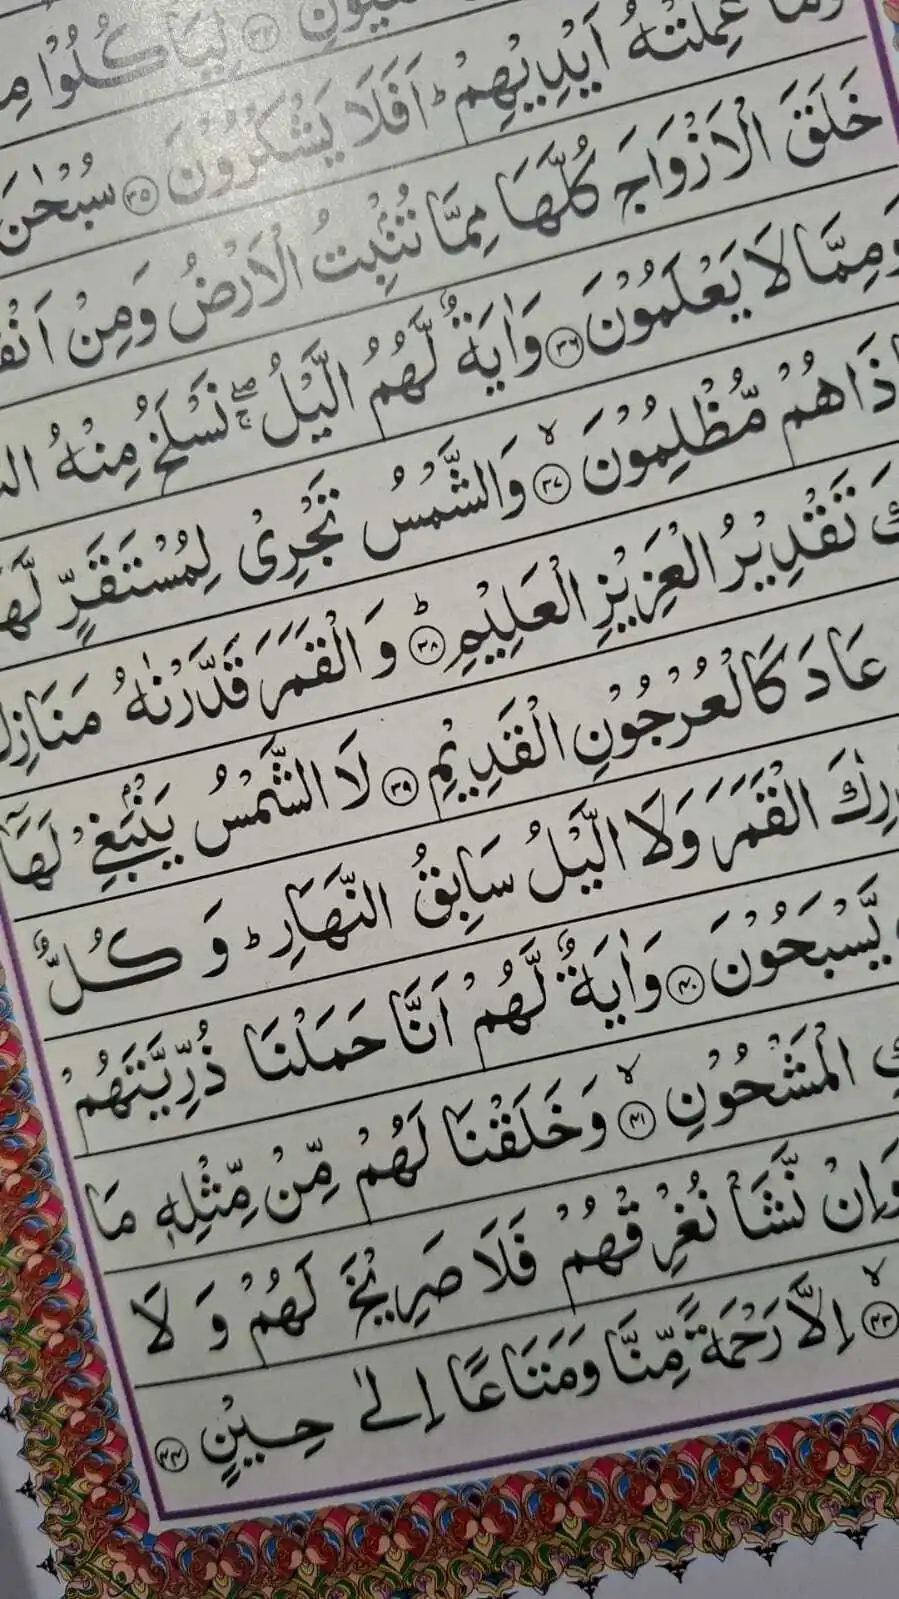 لِيَاْكُلُوْا
عَمِلَتْهُ اَيْدِيْهِمْ ؕ اَفَلَا يَشْكُرُوْنَ ﴿۳۵﴾ سُبْحٰنَ
خَلَقَ الْاَزْوَاجَ كُلَّهَا مِمَّا تُنْۢبِتُ الْاَرْضُ وَمِنْ
وَمِمَّا لَا يَعْلَمُوْنَ ﴿۳۶﴾ وَاٰيَةٌ لَّهُمُ الَّيْلُ ۖۚ نَسْلَخُ مِنْهُ
هُمْ مُّظْلِمُوْنَ ۙ﴿۳۷﴾ وَالشَّمْسُ تَجْرِىْ لِمُسْتَقَرٍّ
تَقْدِيْرُ الْعَزِيْزِ الْعَلِيْمِ ؕ﴿۳۸﴾ وَالْقَمَرَ قَدَّرْنٰهُ
عَادَ كَالْعُرْجُوْنِ الْقَدِيْمِ ﴿۳۹﴾ لَا الشَّمْسُ يَنْۢبَغِىْ لَهَاۤ
الْقَمَرَ وَلَا الَّيْلُ سَابِقُ النَّهَارِ ؕ وَكُلٌّ
يَّسْبَحُوْنَ ﴿۴۰﴾ وَاٰيَةٌ لَّهُمْ اَنَّا حَمَلْنَا ذُرِّيَّتَهُمْ
الْمَشْحُوْنِ ۙ﴿۴۱﴾ وَخَلَقْنَا لَهُمْ مِّنْ مِّثْلِهٖ مَا
وَاِنْ نَّشَاْ نُغْرِقْهُمْ فَلَا صَرِيْخَ لَهُمْ وَلَا
ۙ﴿۴۳﴾ اِلَّا رَحْمَةً مِّنَّا وَمَتَاعًا اِلٰى حِيْنٍ ﴿۴۴﴾